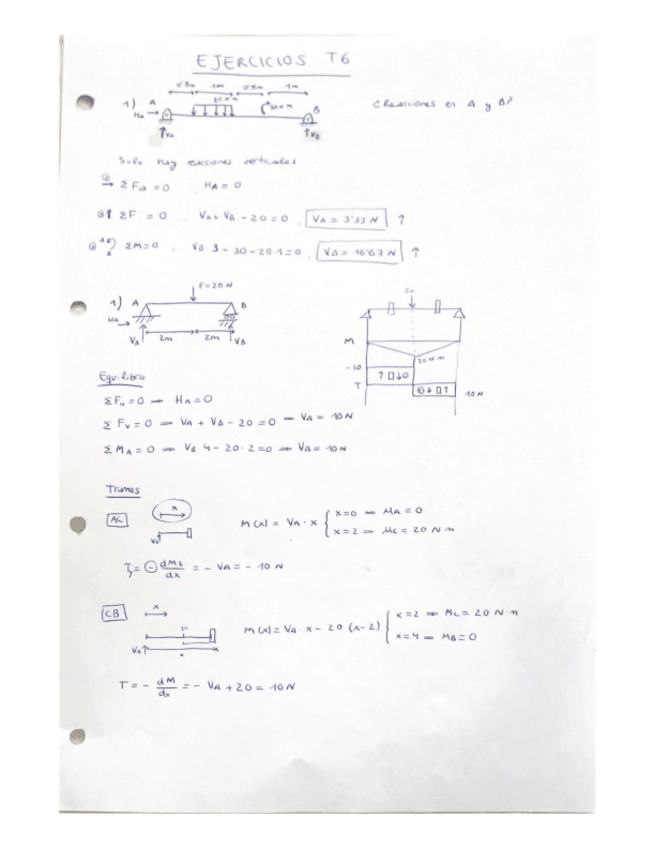 EJERCICIOS T6
0'5m 1m 0'5m 1m
1) A B ¿Reacciones en A y B?
HA
VA VB
Solo hay reacciones verticales
ΣFH = 0 HA = 0
ΣF = 0 , VA + VB - 20 = 0 , VA = 3'33 N ↑
ΣM = 0 , VB 3 - 30 - 20·1 = 0 , VB = 16'67 N ↑
1) A F = 20 N B
HA
VA 2m 2m VB
20
M
20 N·m
-10
T
10 N
Equilibrio
ΣFH = 0 ⇒ HA = 0
ΣFV = 0 ⇒ VA + VB - 20 = 0 ⇒ VA = 10 N
ΣMA = 0 ⇒ VB 4 - 20·2 = 0 ⇒ VB = 10 N
Tramos
AC x
VA
M(x) = VA · x { x=0 ⇒ MA = 0
x=2 ⇒ MC = 20 N·m
Ty = - dMz/dx = - VA = - 10 N
CB x
20
VA x
M(x) = VA · x - 20 (x-2) { x=2 ⇒ MC = 20 N·m
x=4 ⇒ MB = 0
T = - dM/dx = - VA + 20 = 10 N